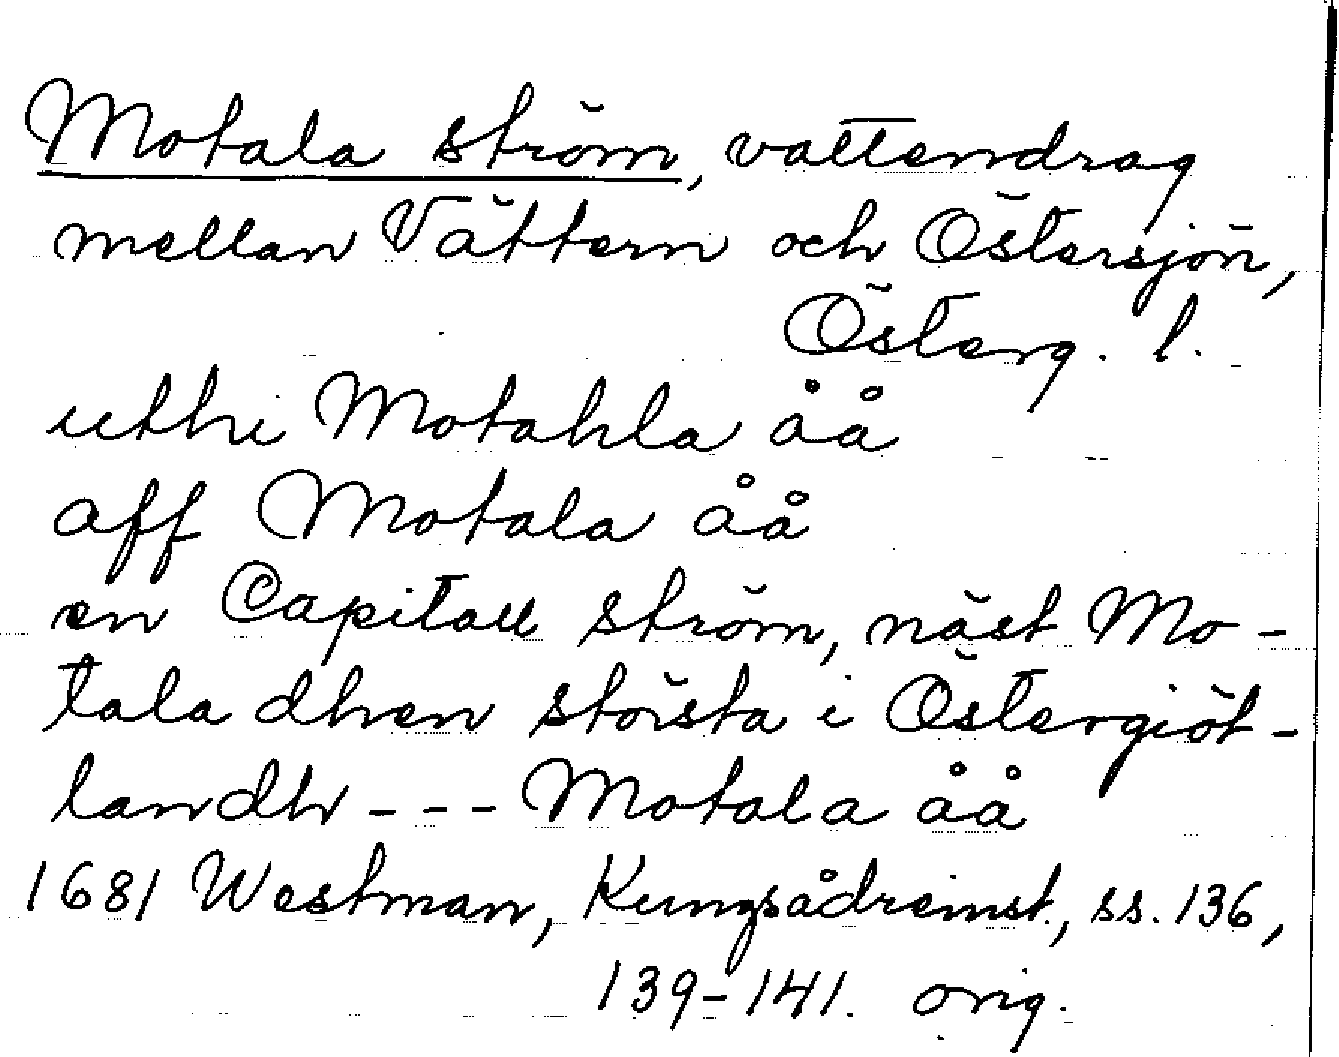 Motala ström, vattendrag
mellan Vättern och Östersjön,
Österg. l.
uthi Motahla åå
aff Motala åå
en Capitall ström, näst Mo-
tala dhen största i Östergiöt-
landh - - - Motala åå
1681 Westman, Kungsådreinst., ss. 136,
139-141. orig.